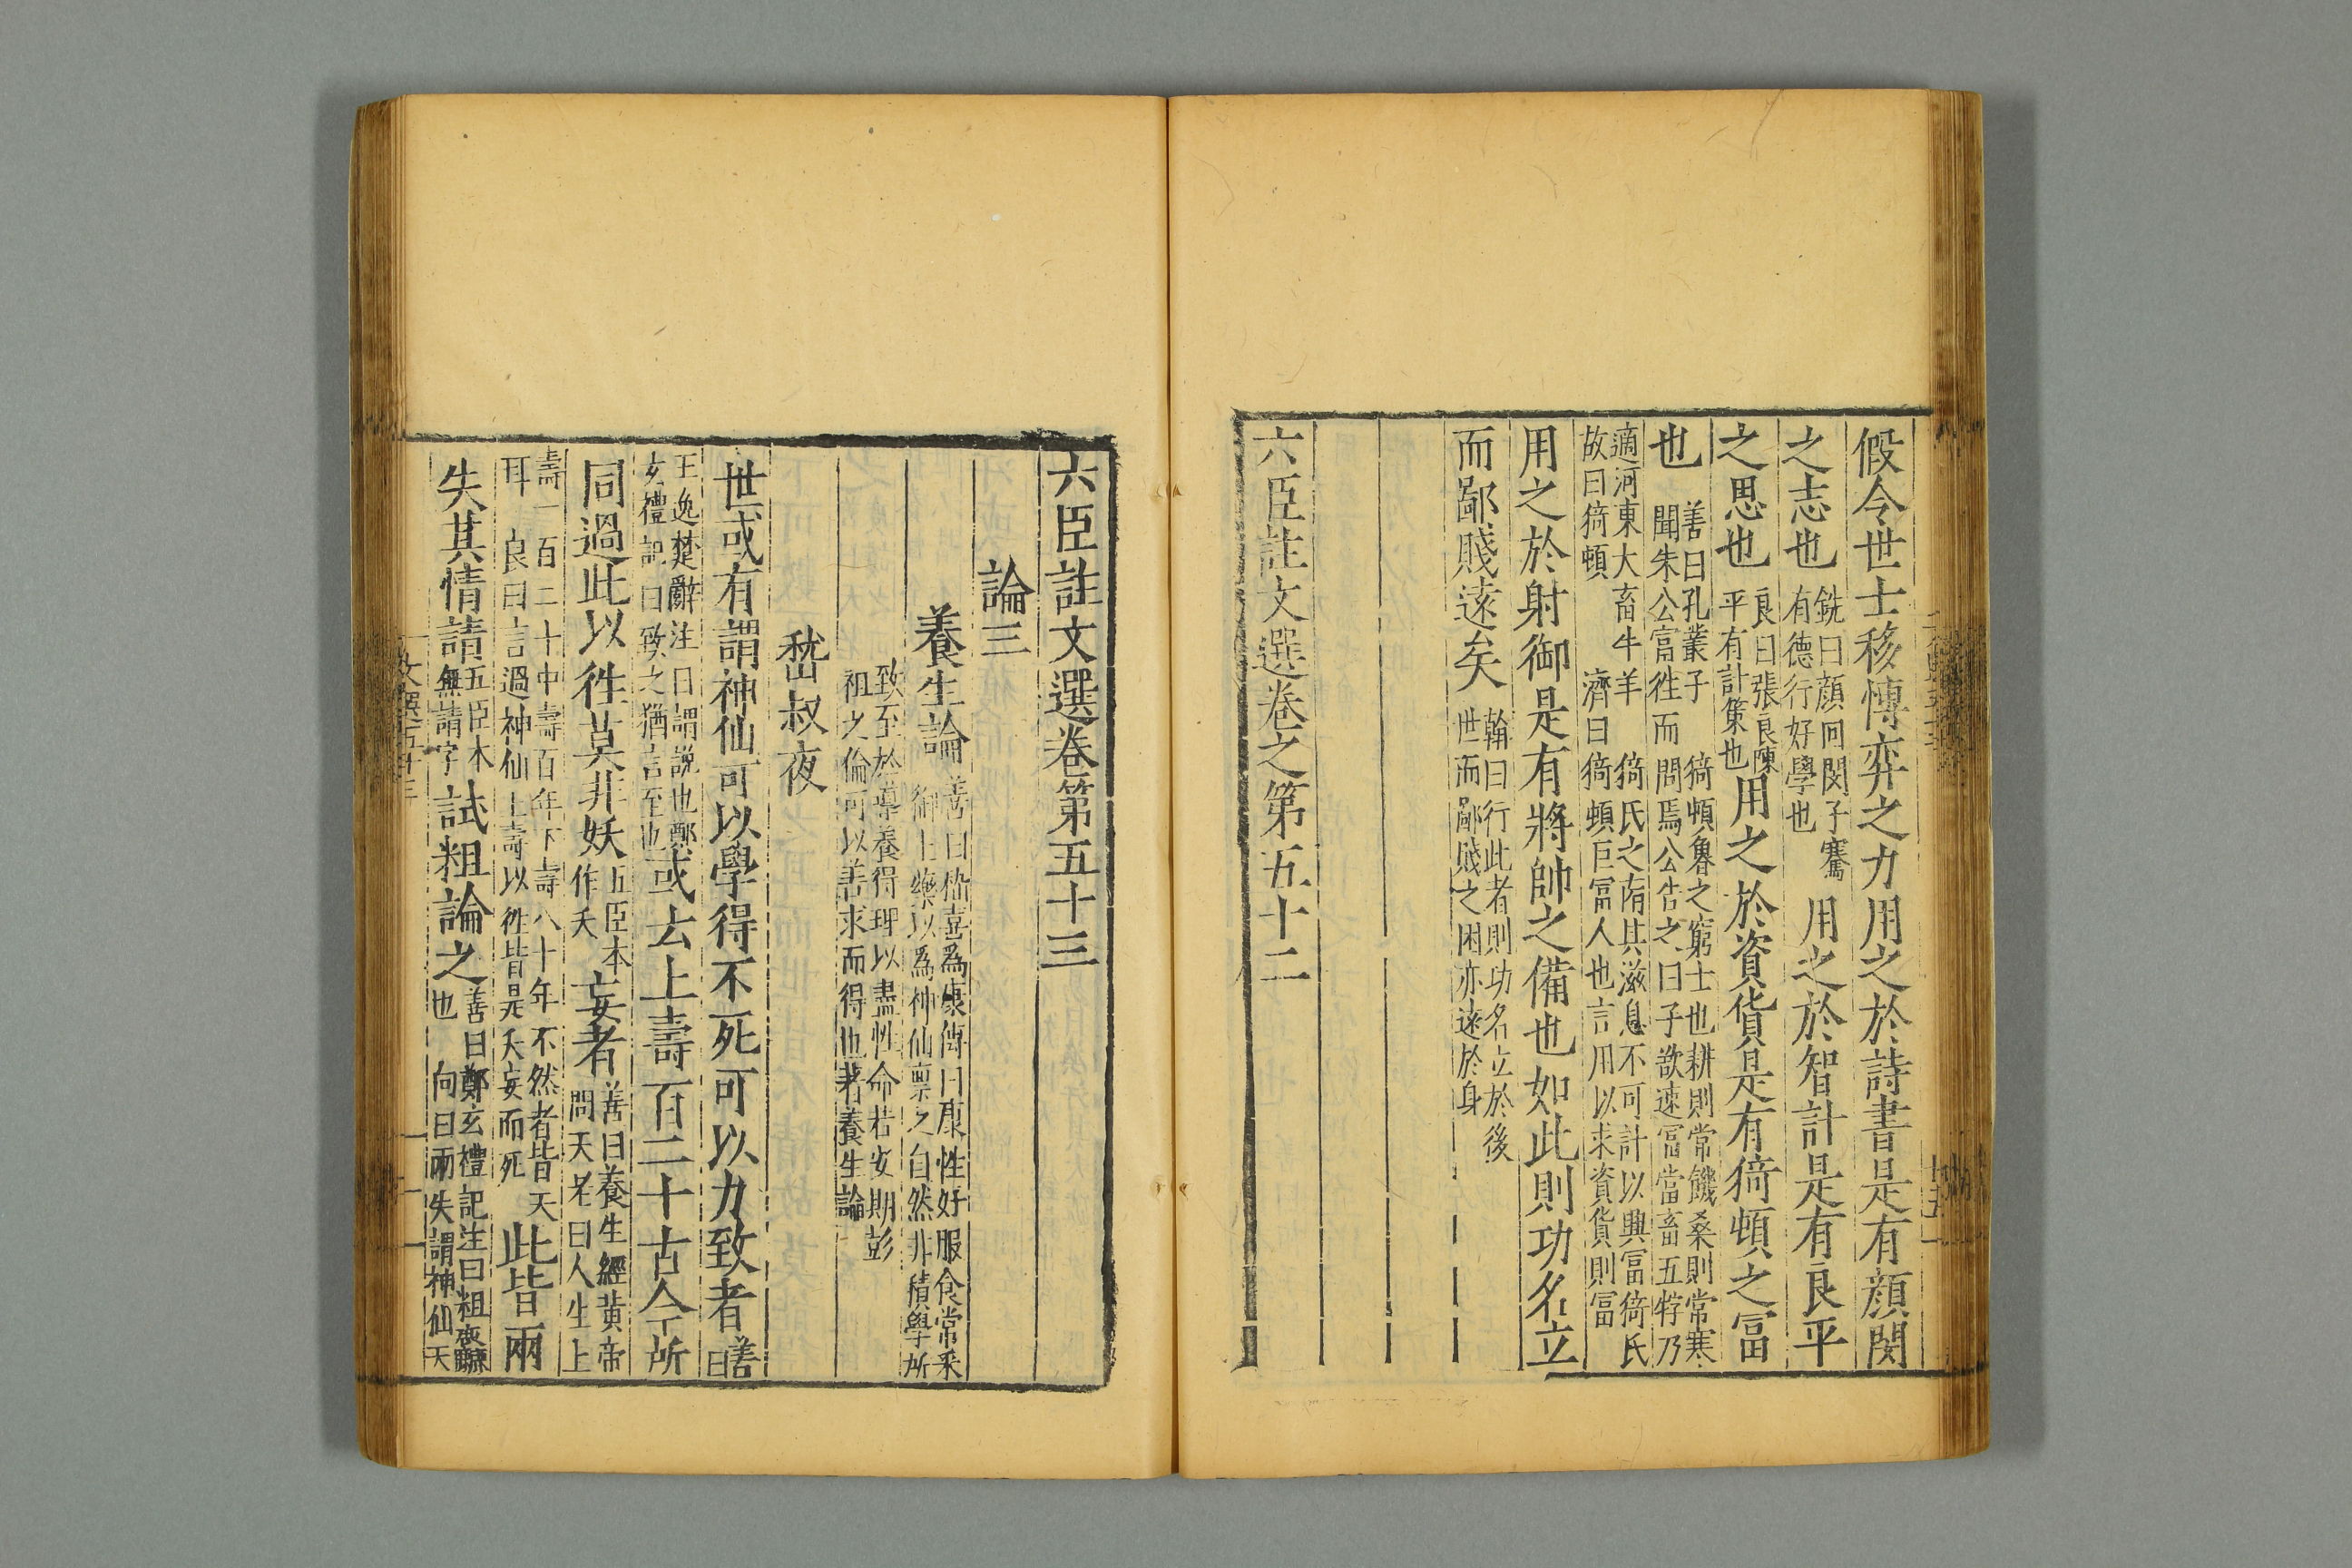 假令世士移愽弈之力用之於詩書是有顏閔
之志也銑曰顏回閔子騫有德行好學也用之於智計是有良平
之思也良曰張良陳平有計策也用之於資貨是有猗頓之冨
也善曰孔叢子猗頓魯之窮士也耕則常饑桑則常寒聞朱公富徃而問焉公告之曰子欲速冨當畜五牸乃
適河東大畜牛羊猗氏之南其滋息不可計以興冨猗氏故曰猗頓濟曰猗頓巨冨人也言用以求資貨則冨
用之於射御是有將帥之備也如此則功名立
而鄙賤遠矣翰曰行此者則功名立於後世而鄙賤之困亦遠於身
六臣註文選卷之第五十二
六臣註文選卷第五十三
論三
養生論善曰嵆喜爲康傳曰康性好服食常采御上藥以爲神仙禀之自然非積學所
致至於導養得理以盡性命若安期彭祖之倫可以善求而得也著養生論
嵆叔夜
世或有謂神仙可以學得不死可以力致者善曰
王逸楚辭注曰謂說也鄭玄禮記曰致之猶言至也或云上壽百二十古今所
同過此以徃莫非妖五臣本作夭妄者善曰養生經黃帝問天老曰人生上
壽一百二十中壽百年下壽八十年不然者皆夭耳良曰言過神仙上壽以徃皆是夭妄而死此皆兩
失其情請五臣本無請字試粗論之善曰鄭玄禮記注曰粗也向曰兩失謂神仙夭